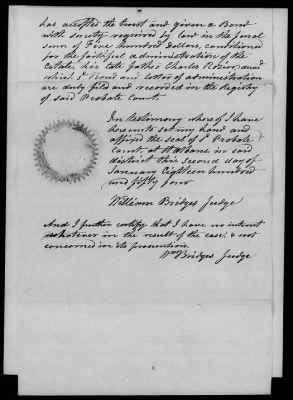 has accepted the trust and given a Bond
with surety required by law in the penal
sum of Five hundred dollars, conditioned
for the faithful administration of the
Estate his late father Charles Rozier, and
which Bond and letter of administration
are duly filed and recorded in the Registry
of said Probate Court.
In Testimony where of I have
hereunto set my hand and
affixed the seal of Probate
Court, at in said
district this second day of
January Eighteen hundred
and fifty four
William Bridges Judge
And I further certify that I have no interest
whatever in the result of the case, & not
concerned in its prosecution.
Wm Bridges Judge